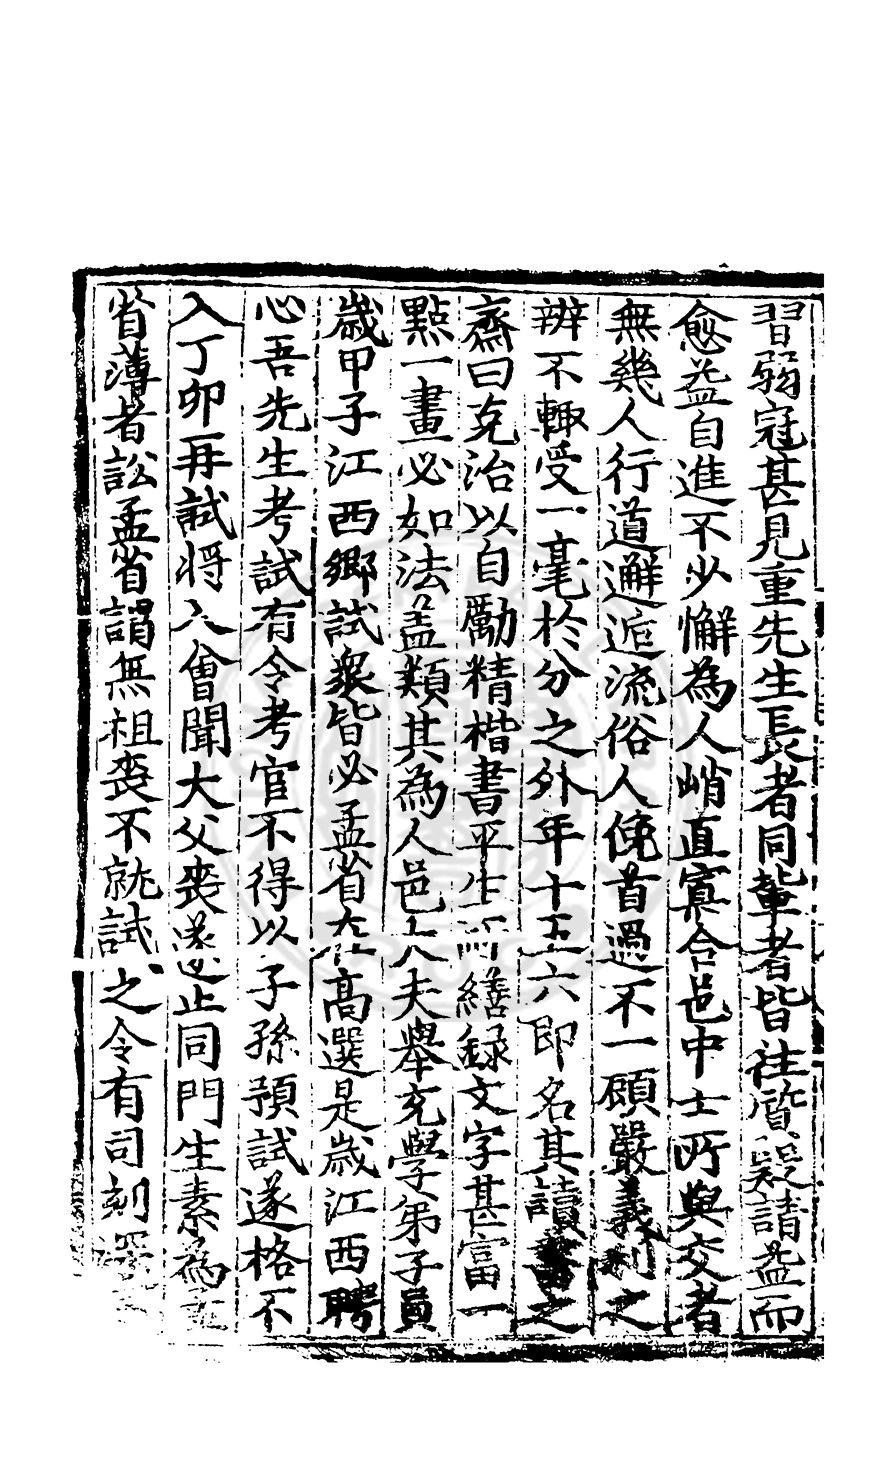 習弱冠甚見重先生長者同輩者皆往質疑請益而
愈益自進不少懈為人峭直寡合邑中士所與交者
無幾人行道邂逅流俗人俛首過不一顧嚴義利之
辨不輙受一毫於分之外年十五六即名其讀書之
齋曰克治以自勵精楷書平生所繕録文字甚富一
點一畫必如法盖類其為人邑大夫舉充學弟子員
歲甲子江西鄉試衆皆必孟省在高選是歲江西聘
心吾先生考試有令考官不得以子孫預試遂格不
入丁卯再試將入會聞大父喪遂止同門生素為
省薄者訟孟省謂無柤喪不就試之令有司刻